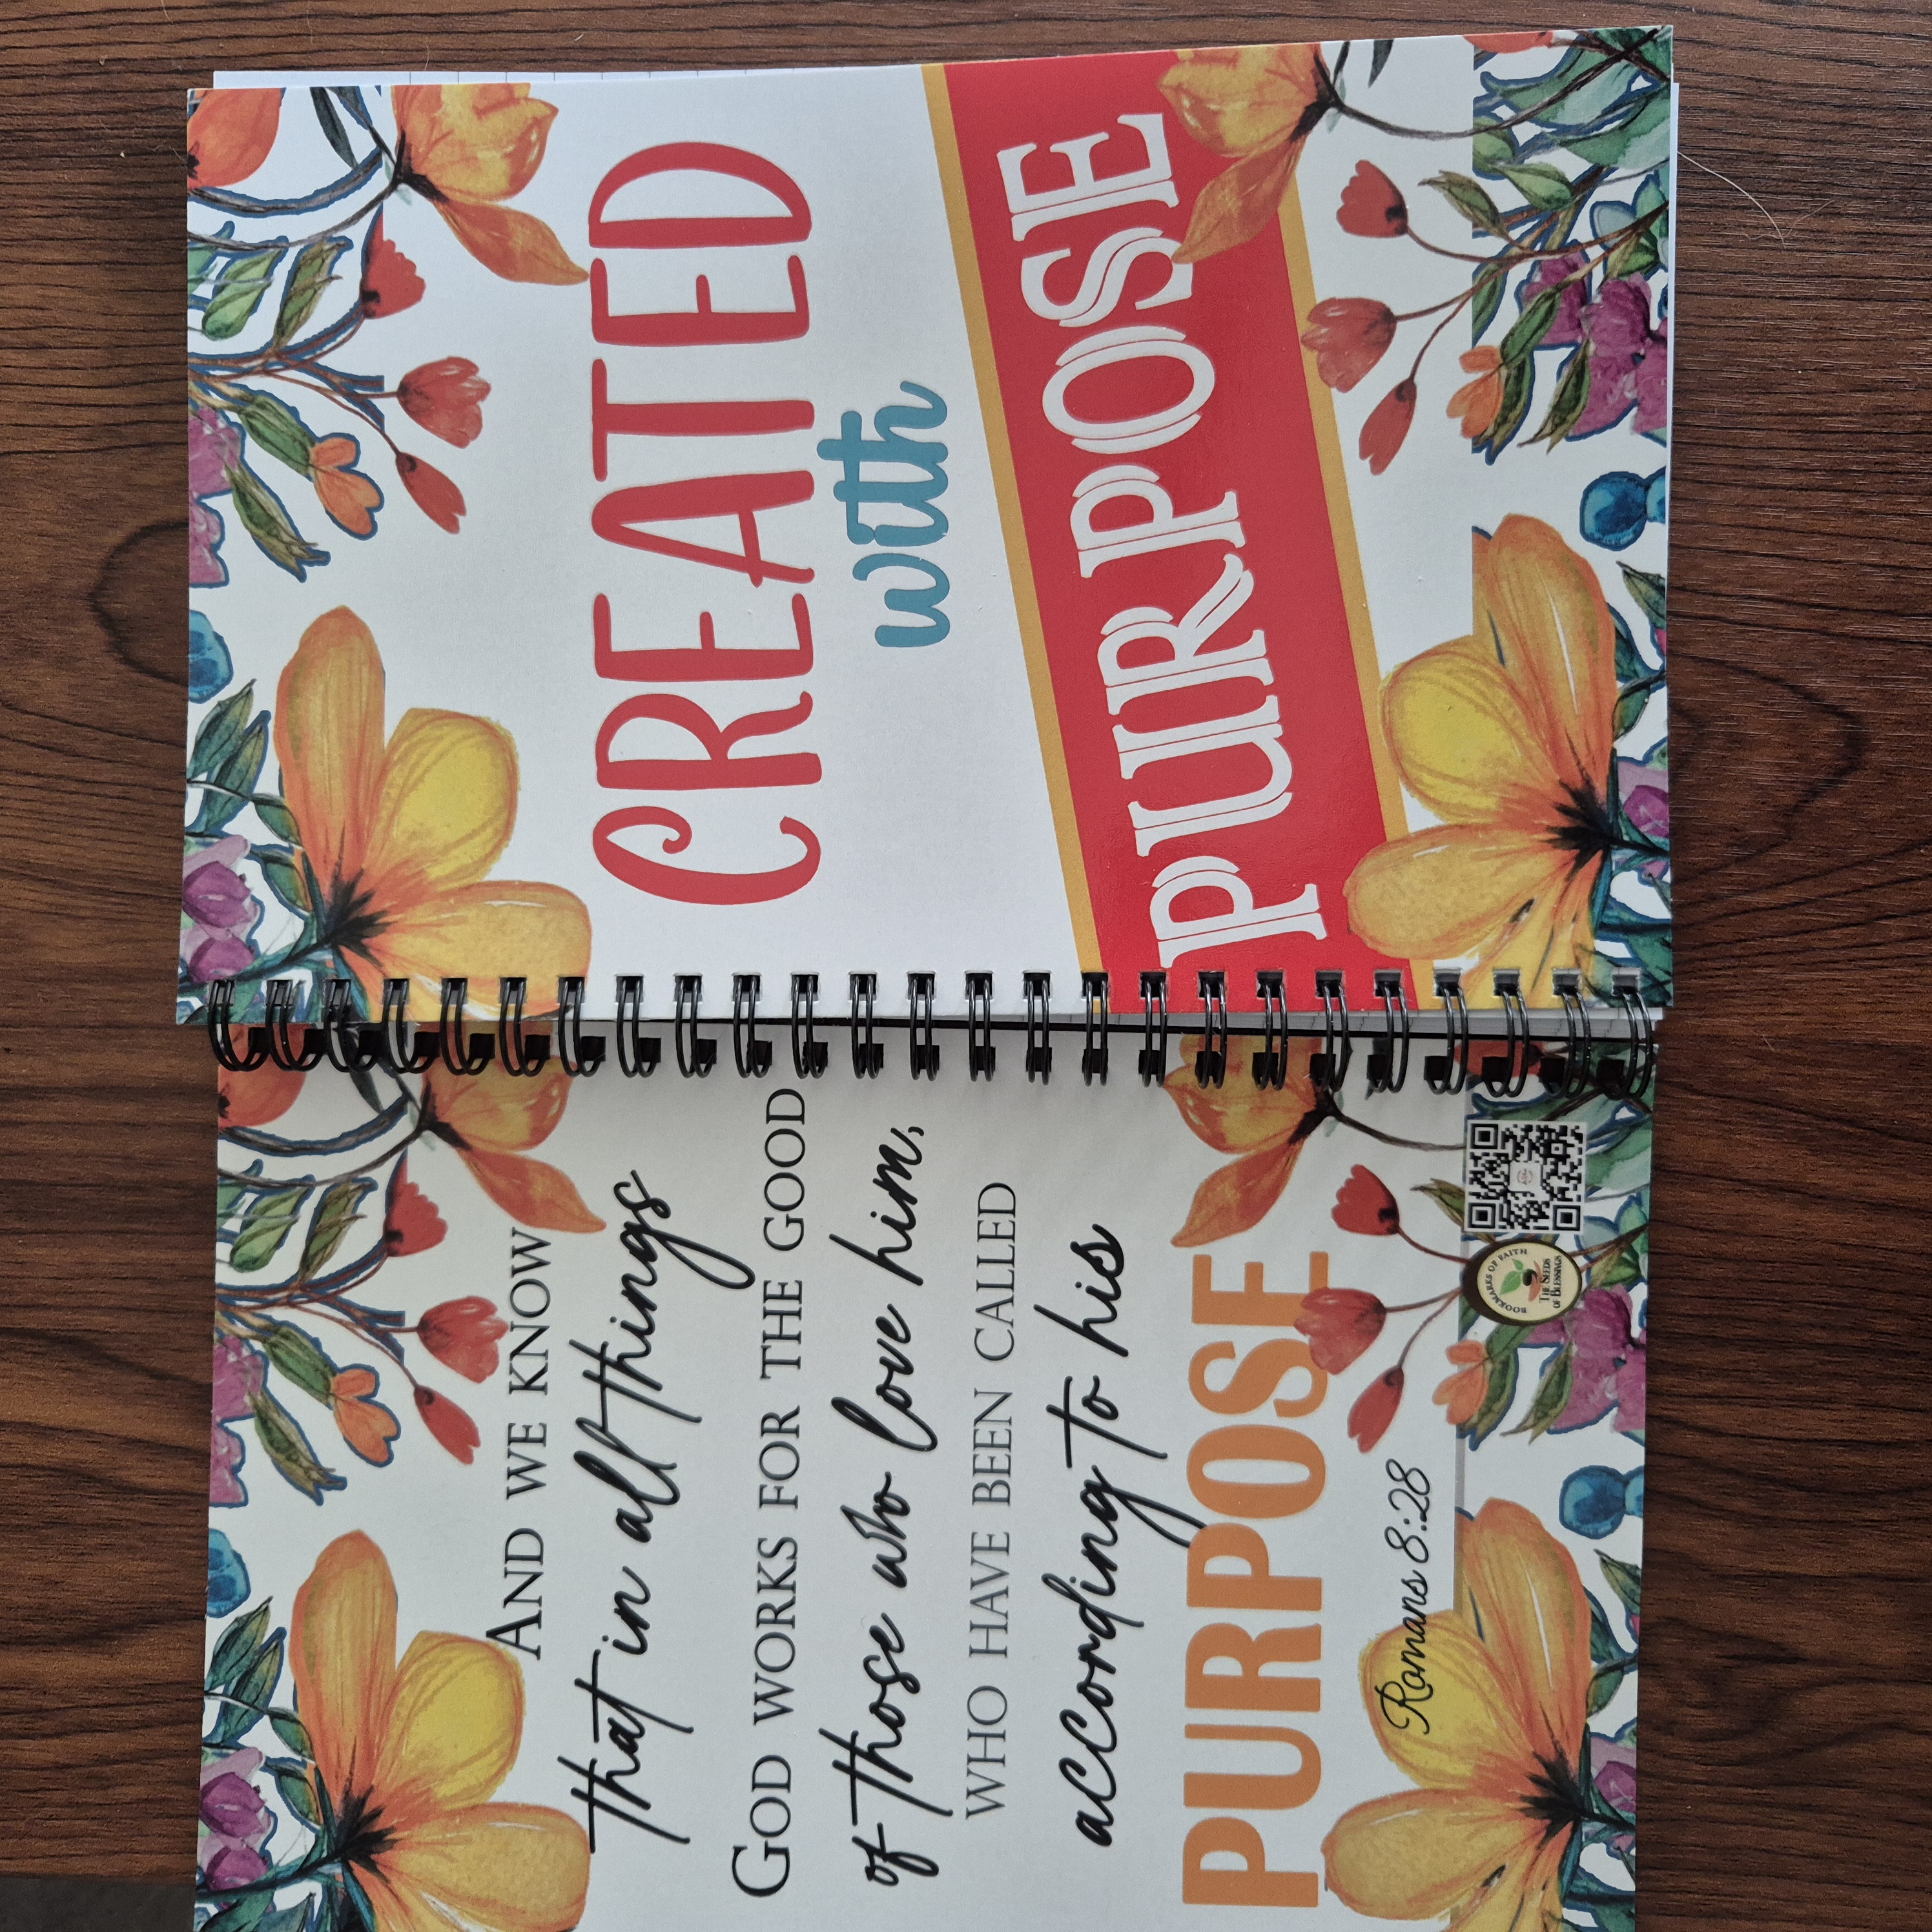 CREATED
with
PURPOSE
AND WE KNOW
that in all things
GOD WORKS FOR THE GOOD
of those who love him,
WHO HAVE BEEN CALLED
according to his
PURPOSE
Romans 8:28
BOOKMARKS OF FAITH
THE SEEDS
OF BLESSINGS